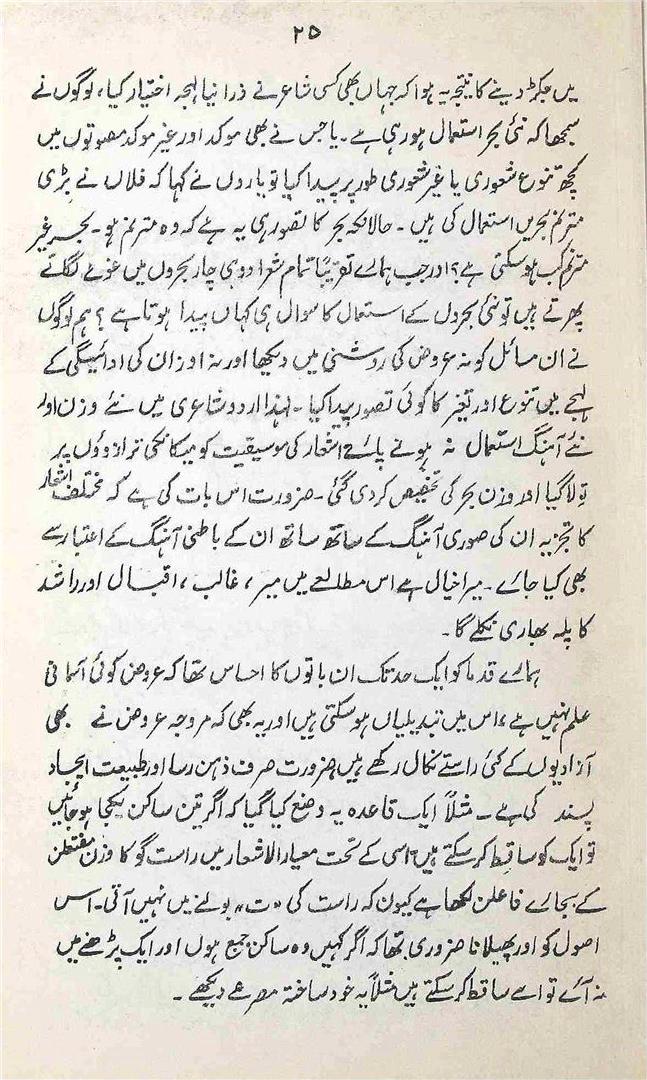 ۲۵
میں جکڑ دینے کا نتیجہ یہ ہوا کہ جہاں بھی کسی شاعر نے ذرا نیا لہجہ اختیار کیا، لوگوں نے
سمجھا کہ نئی بحر استعمال ہو رہی ہے۔ یا جس نے بھی موکد اور غیر موکد مصوتوں میں
کچھ تنوع شعوری یا غیر شعوری طور پر پیدا کیا تو یاروں نے کہا کہ فلاں نے بڑی
مترنم بحریں استعمال کی ہیں۔ حالانکہ بحر کا تصور ہی یہ ہے کہ وہ مترنم ہو۔ بحر غیر
مترنم کب ہو سکتی ہے؟ اور جب ہمارے تقریباً تمام شعرا دو ہی چار بحروں میں غوطے لگاتے
پھرتے ہیں تو نئی بحروں کے استعمال کا سوال ہی کہاں پیدا ہوتا ہے؟ ہم لوگوں
نے ان مسائل کو نہ عروض کی روشنی میں دیکھا اور نہ اوزان کی ادائیگی کے
لہجے میں تنوع اور تغیر کا کوئی تصور پیدا کیا۔ لہذا اردو شاعری میں نئے وزن اور
نئے آہنگ استعمال نہ ہونے پائے، اشعار کی موسیقیت کو میکانکی ترازوؤں پر
تولا گیا اور وزن بحر کی تخصیص کر دی گئی۔ ضرورت اس بات کی ہے کہ مختلف اشعار
کا تجزیہ ان کی صوری آہنگ کے ساتھ ساتھ ان کے باطنی آہنگ کے اعتبار سے
بھی کیا جائے۔ میرا خیال ہے اس مطالعے میں میر، غالب، اقبال اور راشد
کا پلہ بھاری نکلے گا۔
ہمارے قدما کو ایک حد تک ان باتوں کا احساس تھا کہ عروض کوئی آسمانی
علم نہیں ہے، اس میں تبدیلیاں ہو سکتی ہیں اور یہ بھی کہ مروجہ عروض نے بھی
آزادیوں کے کئی راستے نکال رکھے ہیں، ضرورت صرف ذہن رسا اور طبیعت ایجاد
پسند کی ہے۔ مثلاً ایک قاعدہ یہ وضع کیا گیا کہ اگر تین ساکن یکجا ہو جائیں
تو ایک کو ساقط کر سکتے ہیں، اسی کے تحت معیار الاشعار میں راست گو کا وزن مفتعلن
کے بجائے فاعلن لکھا ہے کیوں کہ راست کی "ت" بولنے میں نہیں آتی۔ اس
اصول کو اور پھیلانا ضروری تھا کہ اگر کہیں دو ساکن جمع ہوں اور ایک پڑھنے میں
نہ آئے تو اسے ساقط کر سکتے ہیں مثلاً یہ خود ساختہ مصرعے دیکھے۔